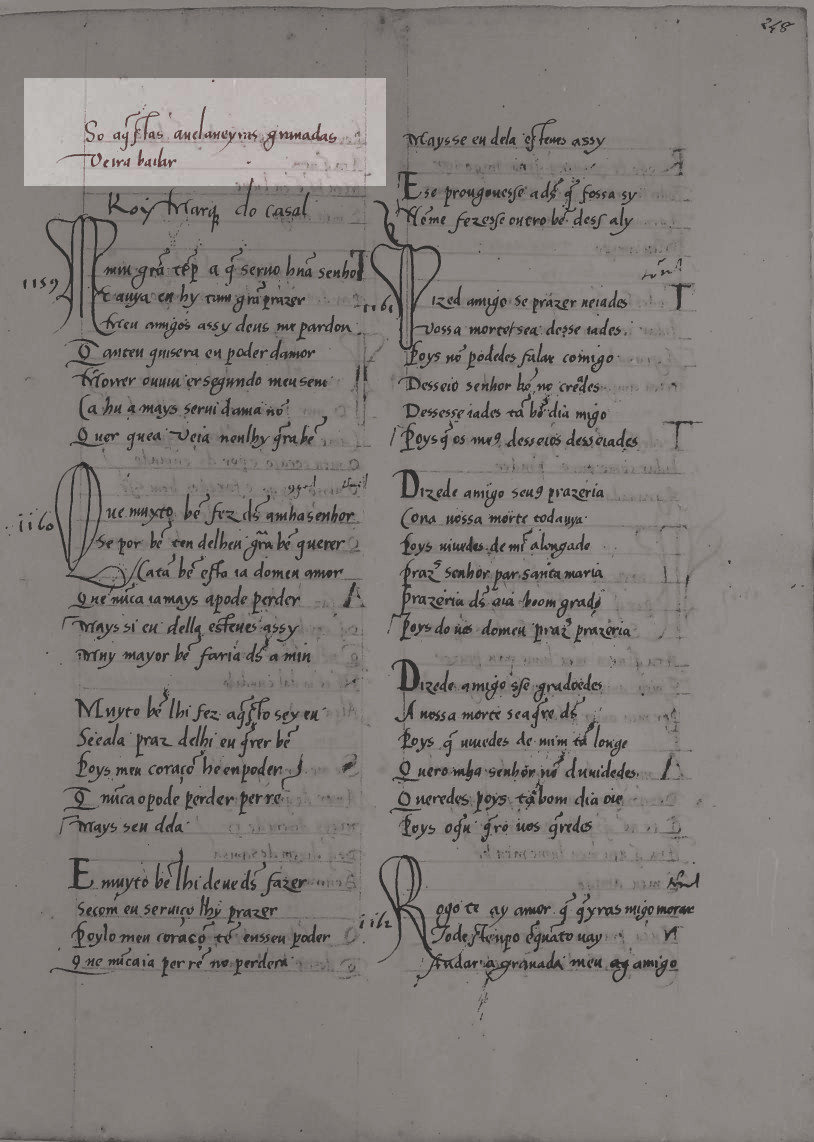 248
So aq̃stas auelaneyras granadas
Veira bailar
Roy Marq̃ do Casal
1159
mui grã tẽp a q̃ seruo hũa senhor
E auya en hy tam grã prazer
Ateu amigos assy deus me pardon
Q tanteu quisera en poder damor
Morrer ouuiu er segundo meu sem
Ca hu a mays serui dama nõ
Quer que a veia nenlhy q̃ra bẽ
1160
Que muyto bẽ fez ds̃ amha senhor
Se por bẽ ten delheu grã bẽ querer
Catã bẽ esto ia domeu amor
Que nũca iamays apode perder
Mays si eu della esteues assy
Muy mayor bẽ faria ds̃ a min
Muyto bẽ lhi fez aq̃sto sey eu
Seeala praz delhi eu q̃rer bẽ
Poys meu coraçõ he en poder
Q nũca o pode perder per rẽ
Mays seu dela
E muyto bẽ lhi deue ds̃ fazer
Secom eu seruiço lhy prazer
Poylo meu coraçõ tẽ ensseu poder
Que nũca ia per rẽ no perdera
Maysse eu dela esteues assy
E se prouguuesse a ds̃ q̃ fossa sy
Nõme fezesse outro bẽ dess aly
1161
Dized amigo se prazer ueiades
Vossa morte sea desseiades
Poys nõ podedes falar comigo
Desseio senhor bẽ no creedes
Dessesseiades tã bõ dia migo
Poys q̃ os me9 desseios desseiades
Dizede amigo seu9 prazeria
Cona uossa morte todauya
Poys uiuedes de mĩ alongado
Praz senhor par santa maria
Prazeria ds̃ aia boom grado
Poys do uos domeu praz prazeria
Dizede amigo sse gradoedes
A uossa morte sea q̃re ds̃
Poys q̃ uiuedes de mim tã longe
Quero mha senhor nõ duuidedes
Queredes poys tã bom dia oie
Poys o q̃ q̃ro uos q̃redes
1162
Rogo te ay amor q̃ q̃yras migo morar
Tod este tenpo ẽquãto uay
Andar a granada meu ay amigo